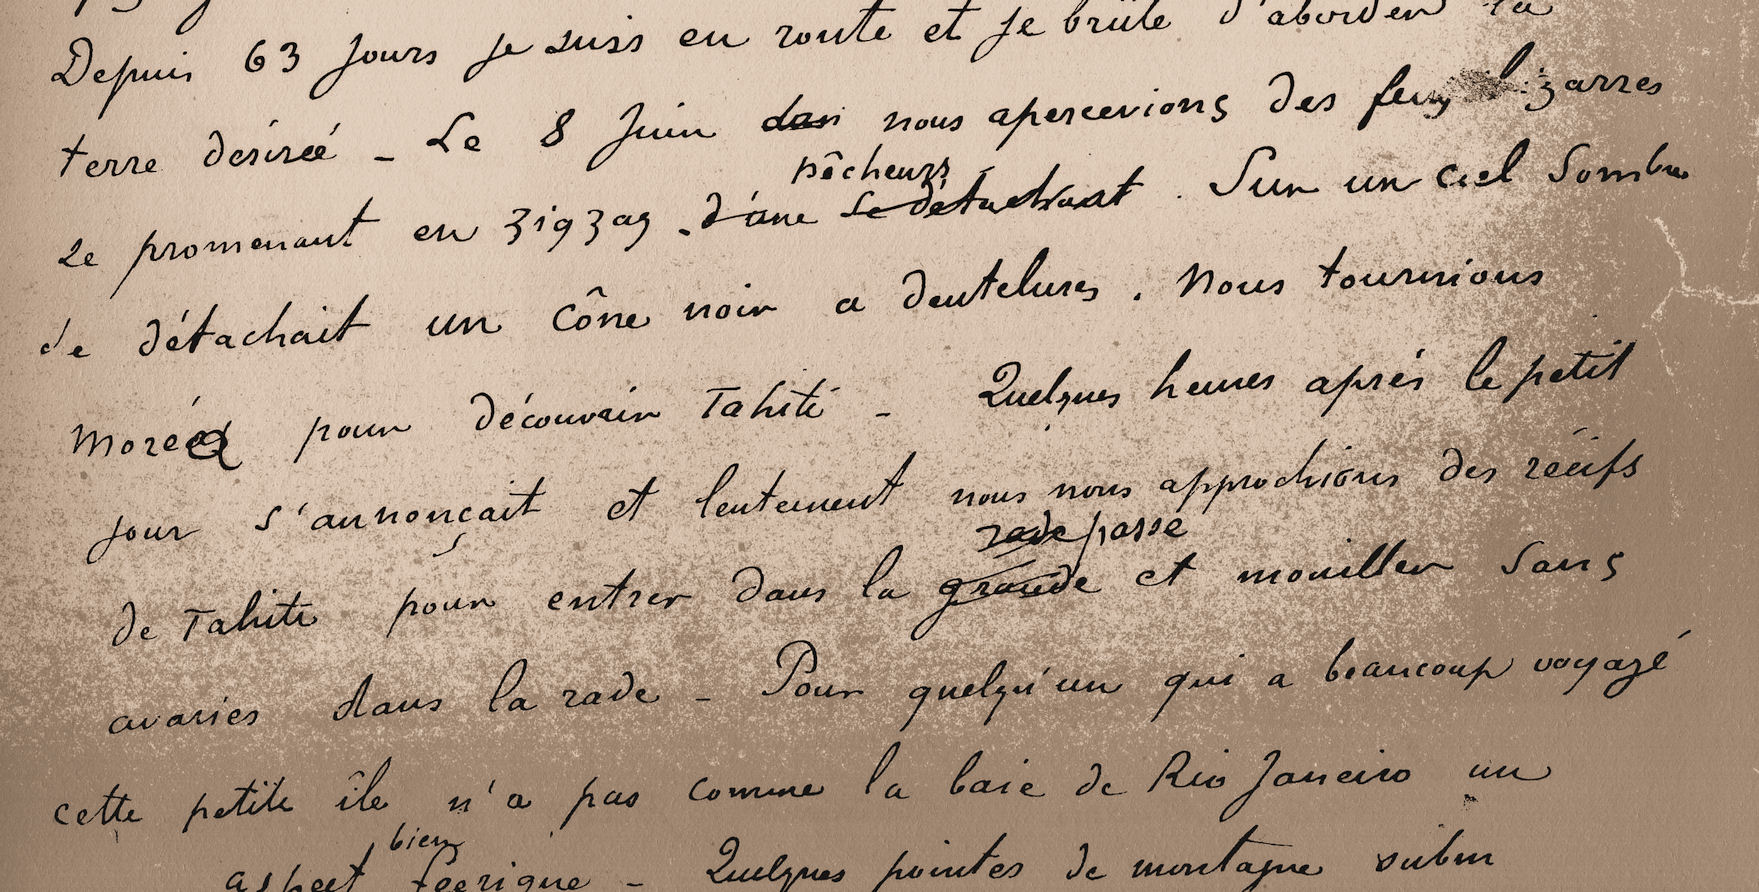 Depuis 63 jours je suis en route et je brûle d'aborder la
terre désirée - Le 8 Juin dan nous apercevions des feux bizarres
pêcheurs
se promenant en zigzag - d'une se détachant . Sur un ciel sombre
de détachait un cône noir a dentelures . Nous tournions
Moréa pour découvrir Tahiti - Quelques heures après le petit
jour s'annonçait et lentement nous nous approchions des récifs
rade passe
de Tahiti pour entrer dans la grande et mouiller sans
avaries dans la rade - Pour quelqu'un qui a beaucoup voyagé
cette petite île n'a pas comme la baie de Rio Janeiro un
bien
aspect féerique - Quelques pointes de montagne subm